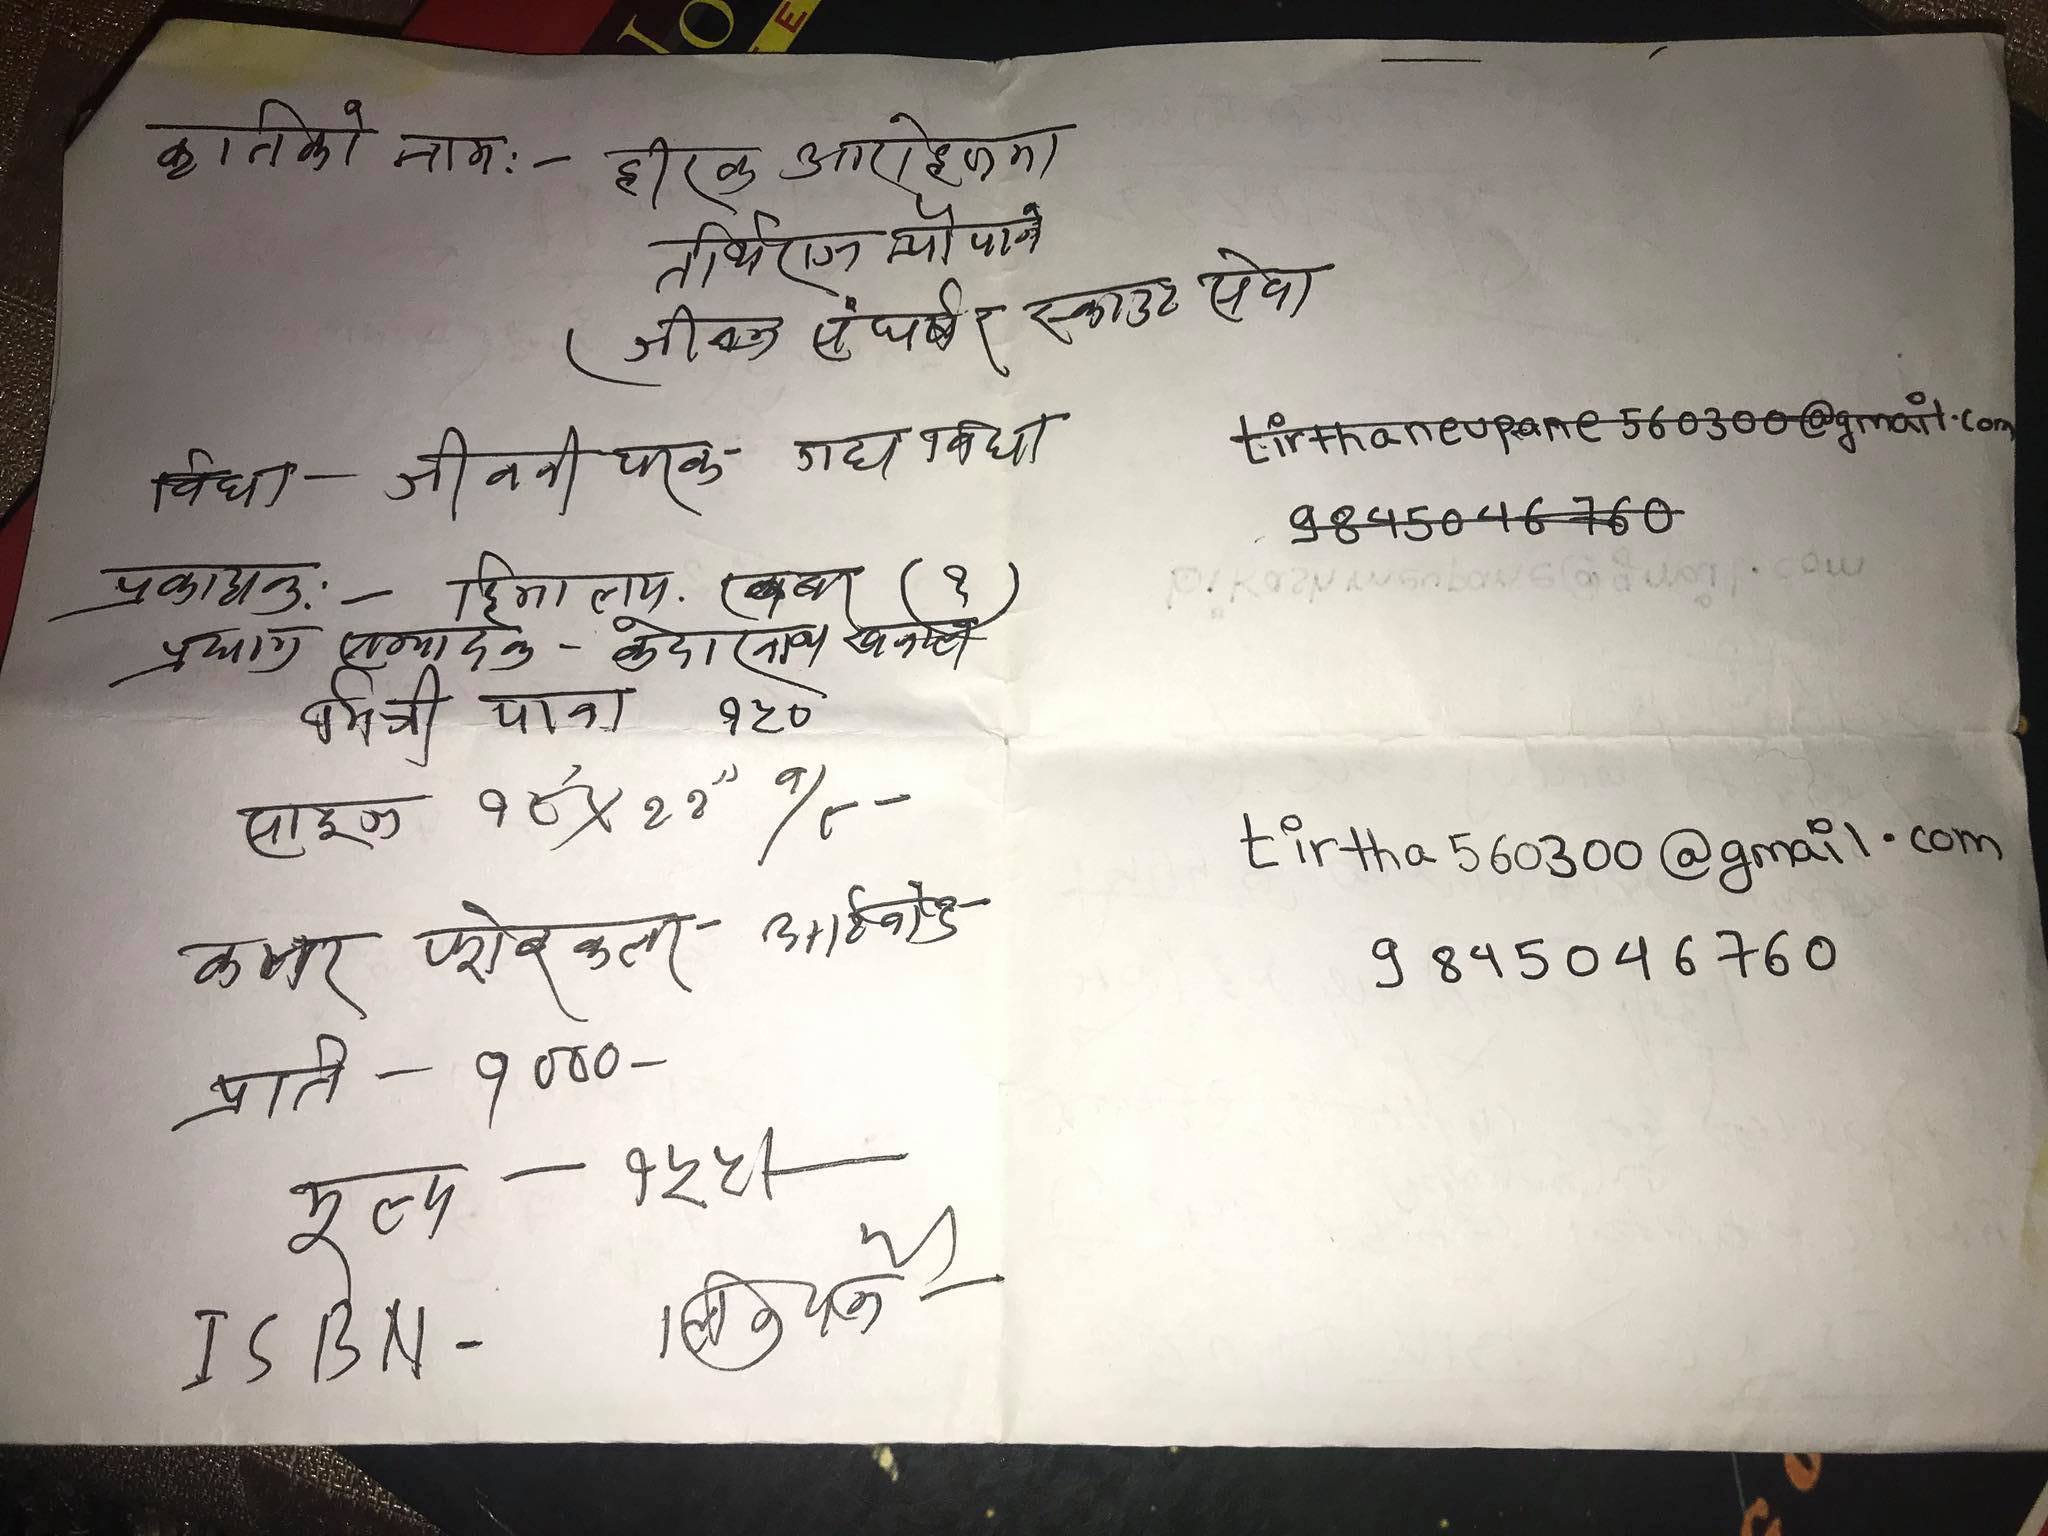 कृतिको नाम :- हीरक आरोहणमा
तीर्थराज न्यौपाने
(जीवन संघर्ष र स्काउट सेवा
विधा - जीवनी परक गद्य विधा
प्रकाशक :- हिमालय खबर (१)
प्रधान सम्पादक - केदारनाथ खनाल
भित्री पाना १५०
साइज १८"X२३" १/८ -
कभर फोरकलर - आर्टबोर्ड
प्रति - १००० -
मूल्य - १५५/-
ISBN -
tirthaneupane560300@gmail.com
9845046760
tirtha560300@gmail.com
9845046760